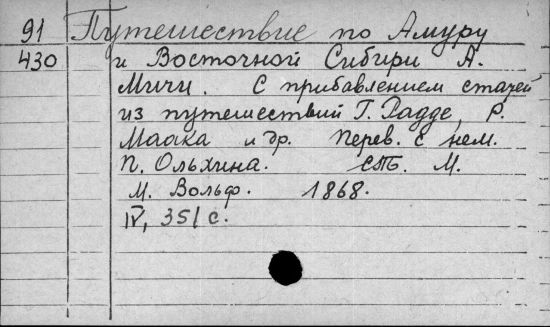 91 Путешествие по Амуру
430 и Восточной Сибири А.
Мичи. С прибавлением статей
из путешествий Г. Радде, Р.
Маака и др. Перев. с нем.
П. Ольхина. СПб. М.
М. Вольф. 1868.
IV, 351 с.